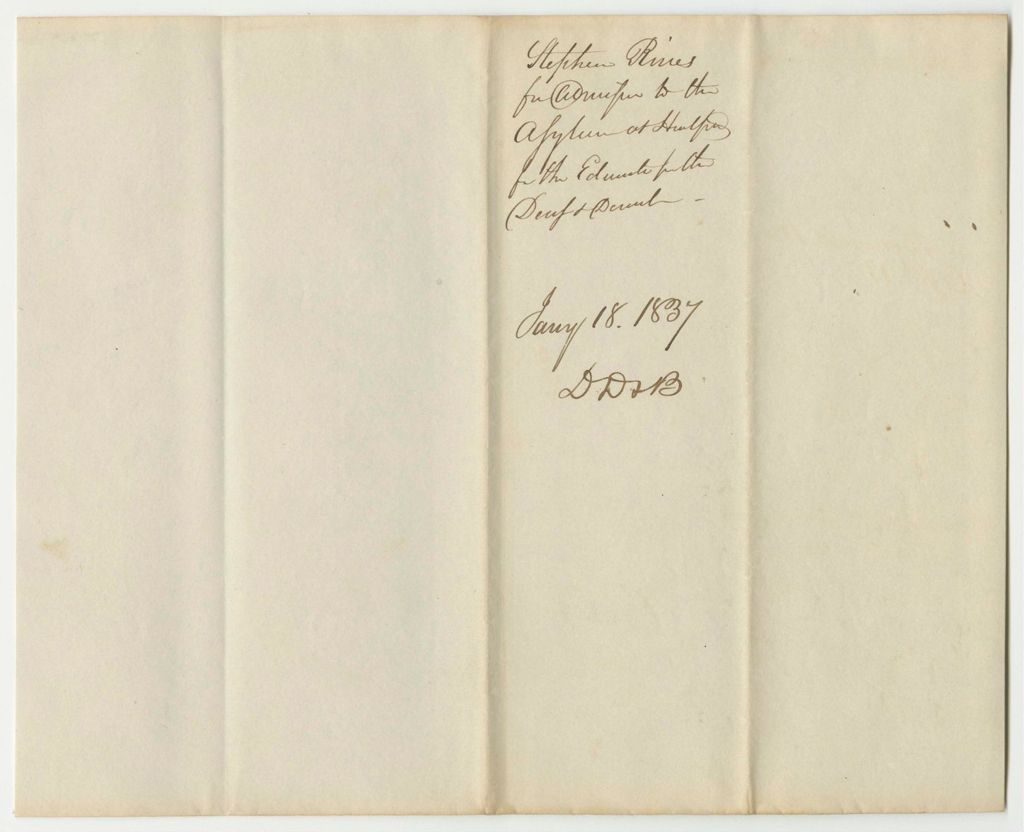 Stephen Rines
for Admission to the
Asylum at Hartford
for the Educate for the
Deaf & Dumb –
Jany 18. 1837
D D & B